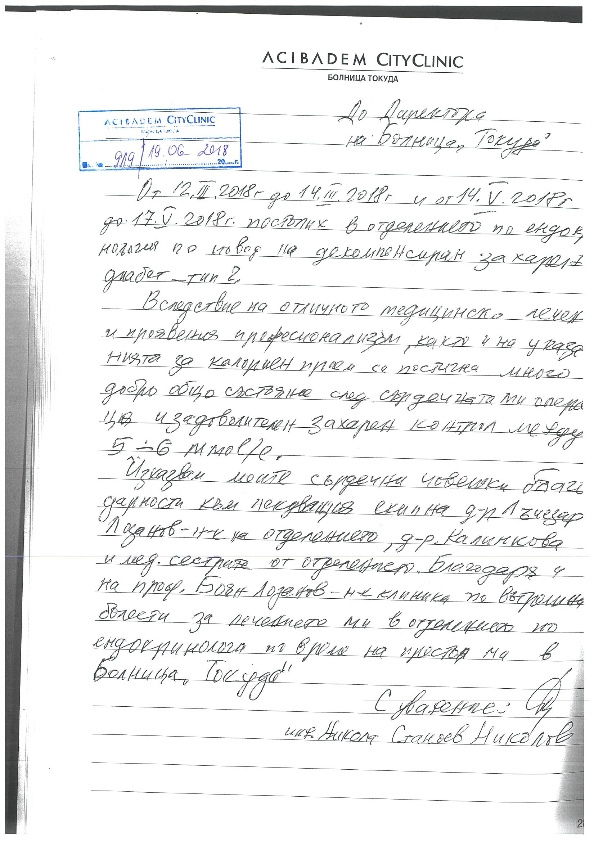 ACIBADEM CITYCLINIC
БОЛНИЦА ТОКУДА
До Директора
на Болница „Токуда"
ACIBADEM CITYCLINIC
919 / 19.06 2018
От 12.III.2018г до 14.III.2018г и от 14.V.2018г
до 17.V.2018г. постъпих в отделението по ендок,
нология по повод на декомпенсиран захарен
диабет – тип 2.
Вследствие на отличното медицинско лечен
и проявения професионализъм, както и на указа
нията за калориен прием се постигна много
добро общо състояние след сърдечната ми опера
ция и задоволителен захарен контрол между
5 ÷ 6 mmol/e.
Изказвам моите сърдечни човешки благо
дарности към лекуващия екип на д-р Лъчезар
Лозанов – н-к на отделението, д-р. Калинкова
и мед. сестрите от отделението. Благодаря и
на проф. Боян Лозанов – н-к клиника по вътрешни
болести за лечението ми в отделението по
ендокринология по време на престоя ми в
Болница „Токуда"
С уважение:
инж. Никола Станоев Николов